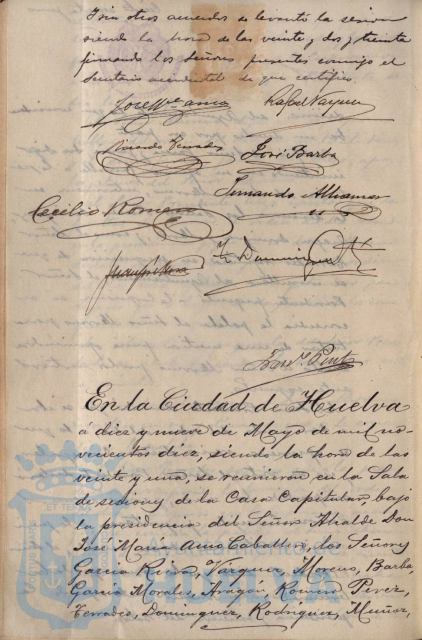 Y sin otros acuerdos se levantó la sesion
siendo la hora de las veinte y dos y treinta
firmando los Señores presentes conmigo el
Secretario accidental de que certifico.
José Mª Amo Rafael Vazquez
José Barba
Fernando Alhamar
Cecilio Romero
Fr. Dominguez
En la Ciudad de Huelva
á diez y nueve de Mayo de mil no-
vecientos diez, siendo la hora de las
veinte y una, se reunieron en la Sala
de sesiones de la Casa Capitular, bajo
la presidencia del Señor Alcalde Don
José María Amo Caballero, los Señores
Garcia Vázquez, Moreno, Barba,
Garcia Morales, Aragón, Romero Perez,
Terrades, Dominguez, Rodriguez, Muñoz,